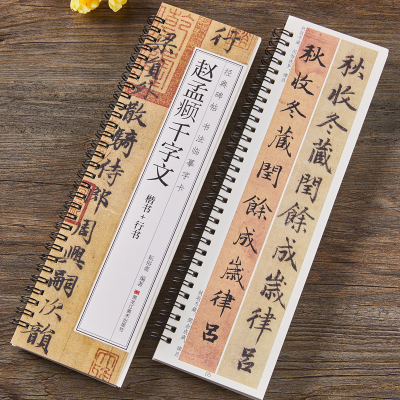 行
经典碑帖 书法临摹字卡
赵孟頫千字文
楷书+行书
编著
黑龙江美术出版社
梁員外散騎侍郎周興嗣次韻
秋收冬藏閏餘成歲律呂
秋收冬藏閏餘成歲律呂